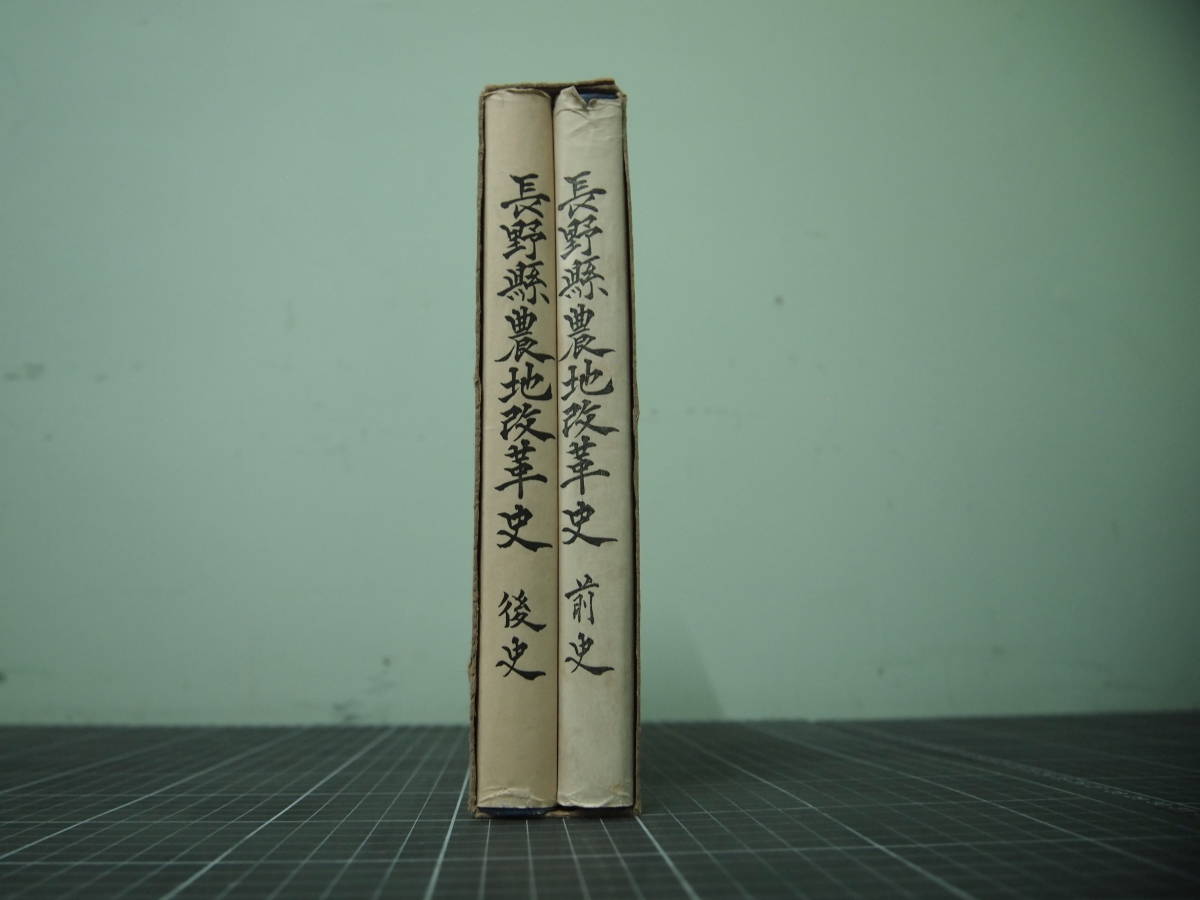 長野縣農地改革史 前史
長野縣農地改革史 後史